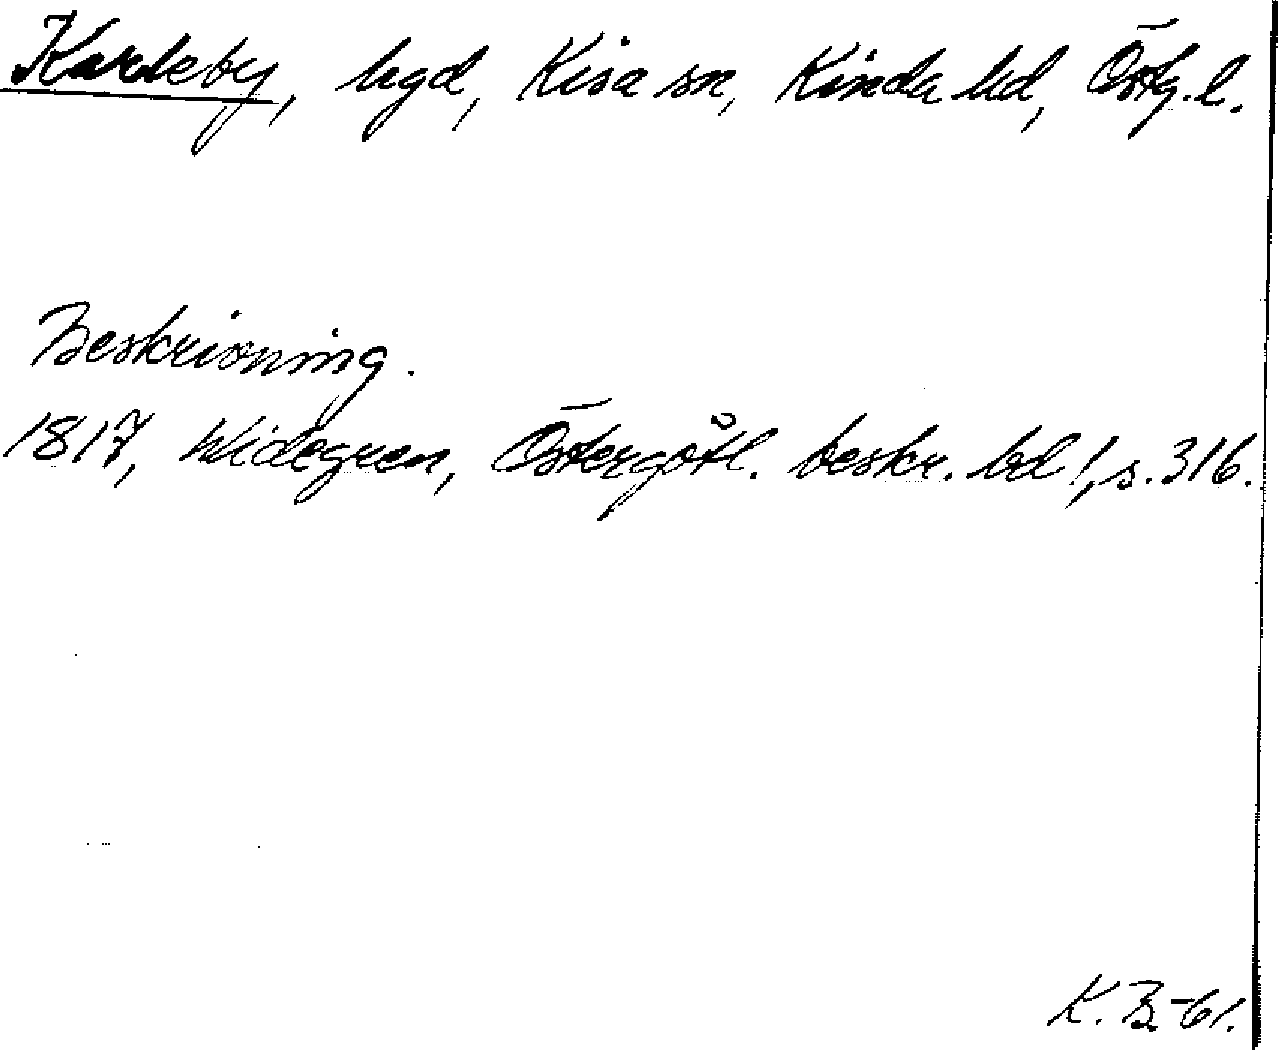 Karleby, hgd, Kisa sn, Kinda hd, Östg. l.
Beskrivning.
1817, Widegren, Östergötl. beskr. bd 1, s. 316.
K. B-61.